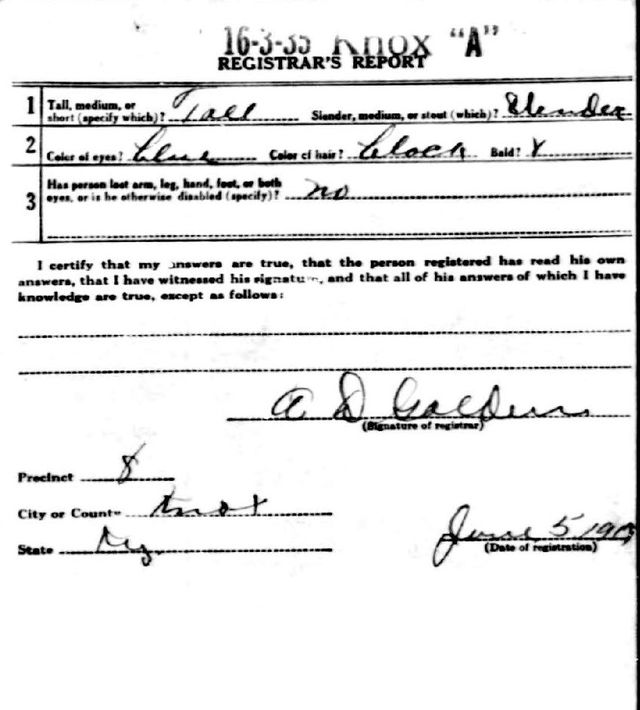 16-3-35 Knox "A"
REGISTRAR'S REPORT
1 Tall, medium, or short (specify which)? Tall Slender, medium, or stout (which)? Slender
2 Color of eyes? blue Color of hair? black Bald?
3 Has person lost arm, leg, hand, foot, or both
eyes, or is he otherwise disabled (specify)? no
I certify that my answers are true, that the person registered has read his own
answers, that I have witnessed his signature, and that all of his answers of which I have
knowledge are true, except as follows:
A D
(Signature of registrar)
Precinct 8
City or County Knox
State Ky. June 5 19
(Date of registration)